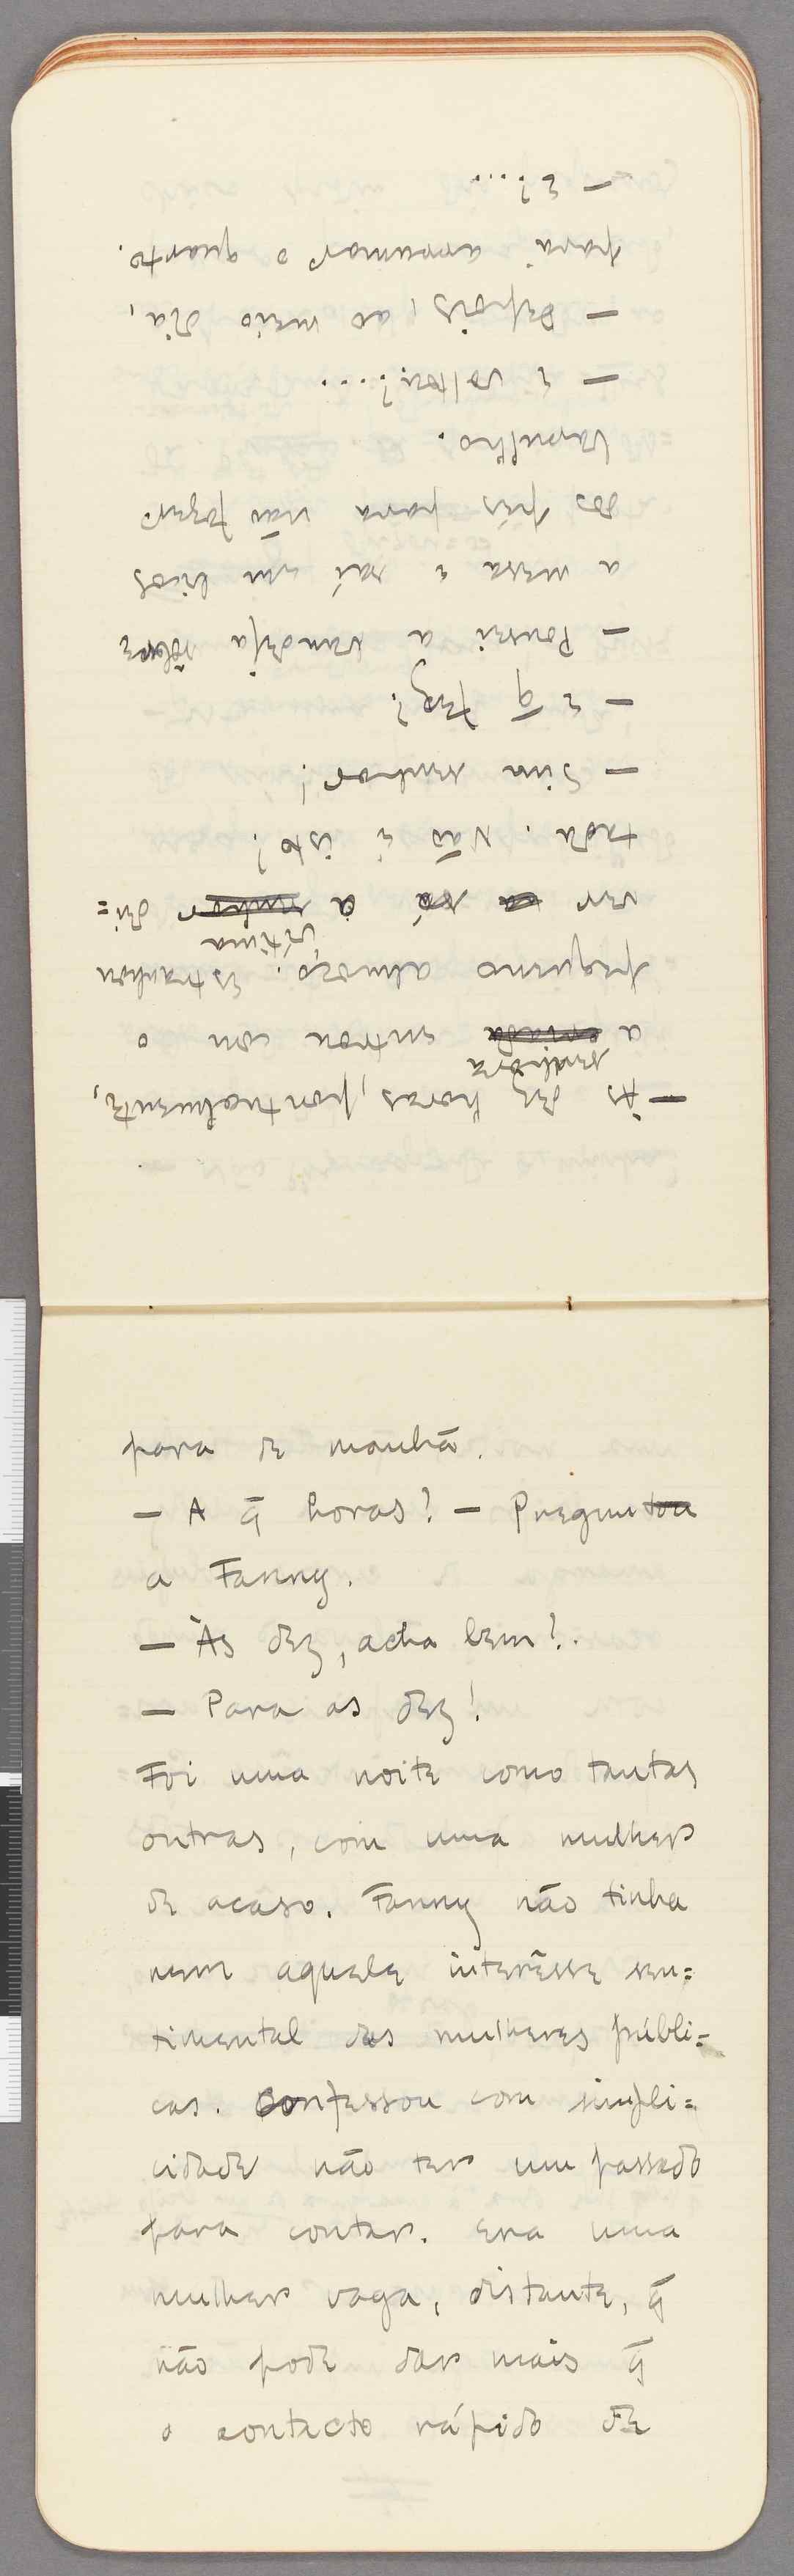 — Às dez horas, pontualmente,
senhora
a criada entrou com o
pequeno almoço. Estranhou
vítima
ver a só a senhor dei=
tada. Não é isto?
— Sim senhor!
— E q̄ fez?
— Pousei a bandeja sôbre
a mesa e saí em bicos
dos pés para não fazer
barulho.
— E voltou?....
— Depois, ao meio dia,
para arrumar o quarto.
— E?....
para de manhã.
— A q̄ horas? — Preguntou
a Fanny.
— Às dez, acha bem?.
— Para as dez!
Foi uma noite como tantas
outras, com uma mulher
de acaso. Fanny não tinha
nem aquele interêsse sen=
timental das mulheres públi=
cas. Confessou com simpli=
cidade não ter um passado
para contar. Era uma
mulher vaga, distante, q̄
não pode dar mais q̄
o contacto rápido de